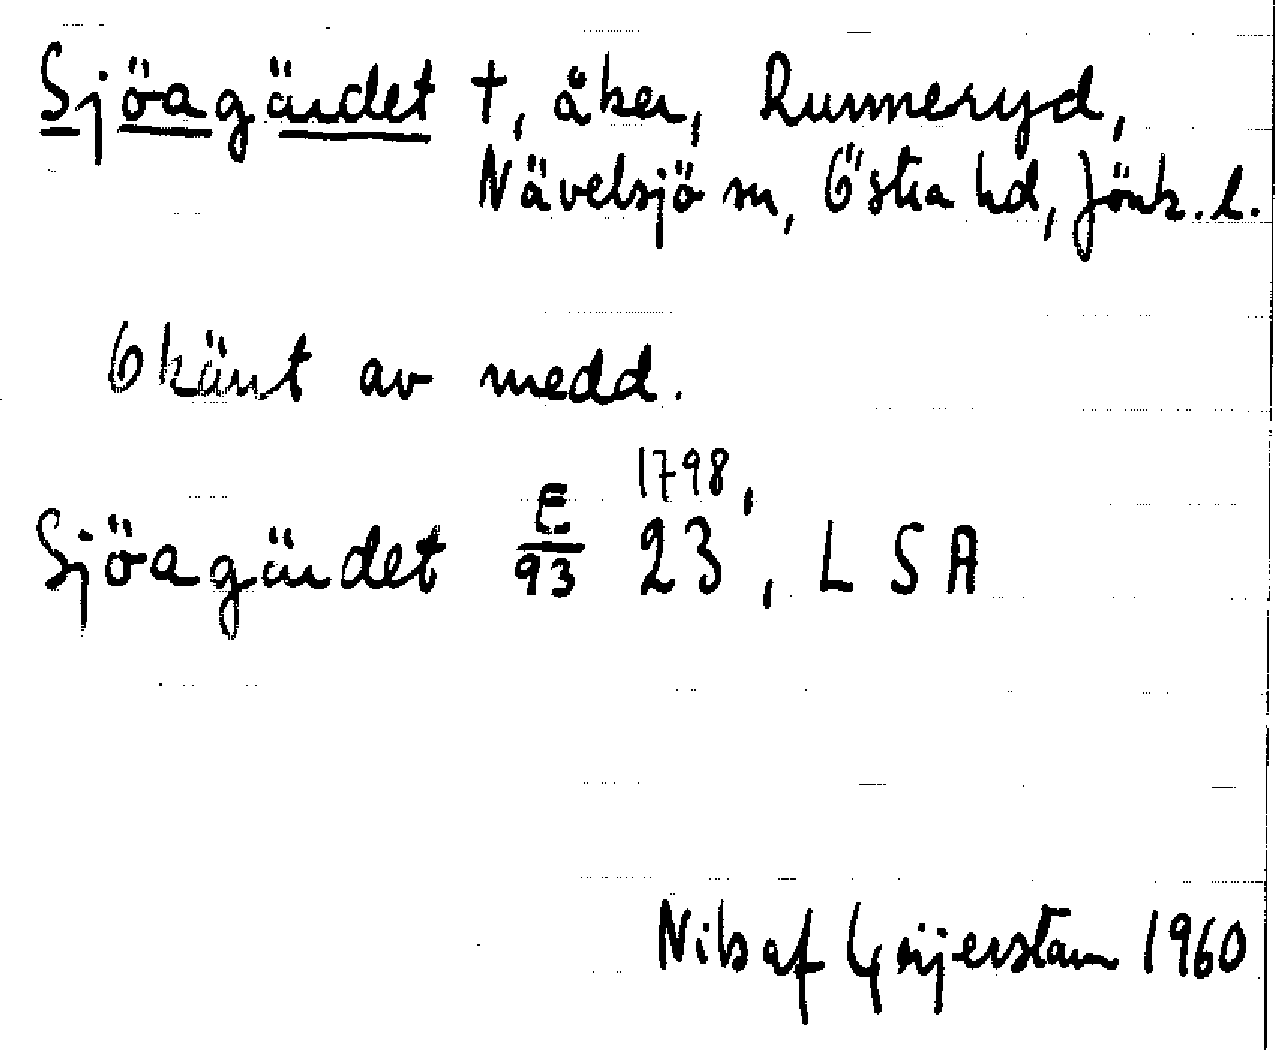 Sjöagärdet †, åker, Runneryd,
Nävelsjö sn, Östra hd, Jönk. l.
Okänt av medd.
1798,
Sjöagärdet E/93 23, L S A
Nils af Geijerstam 1960